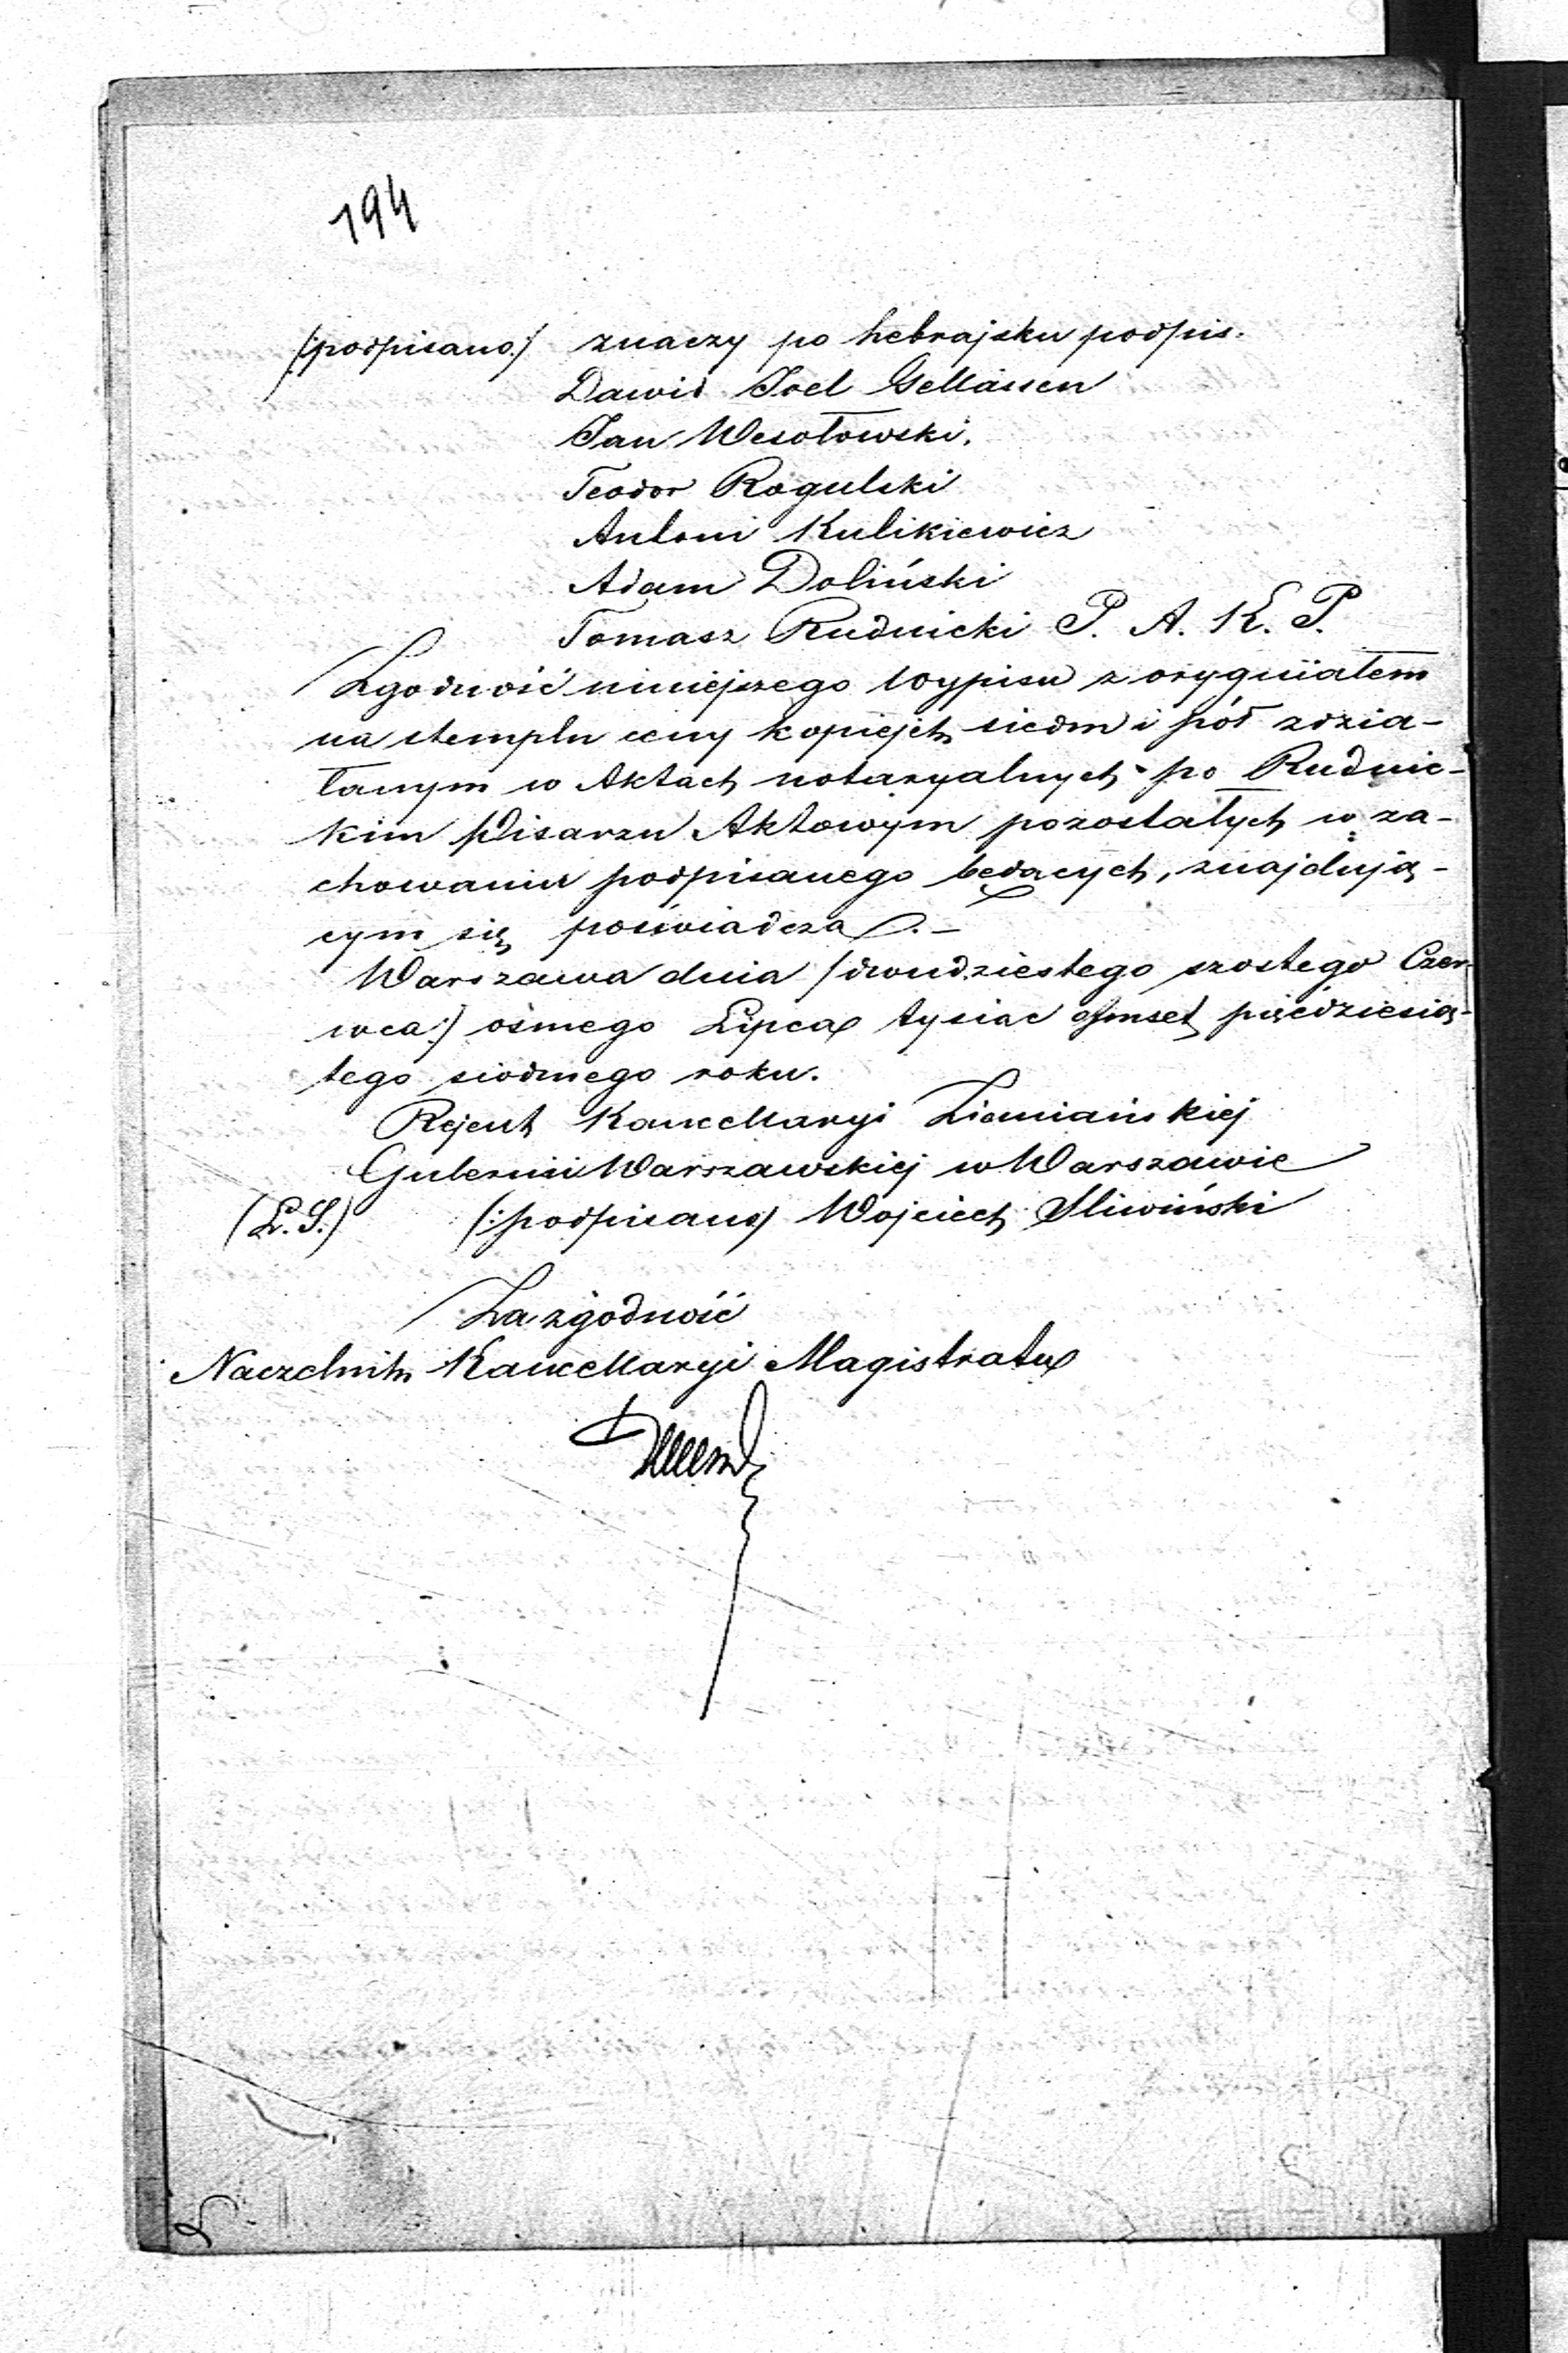 194
(:podpisano:) znaczy po hebrajsku podpis.
Dawid Joel Gellassen
Jan Wesołowski.
Teodor Rogulski
Antoni Kulikiewicz
Adam Doliński
Tomasz Rudnicki P. A. K. P.
Zgodność niniejszego wypisu z oryginałem
na stemplu ceny kopiejek siedm i pół zdzia-
łanym w Aktach notaryalnych po Rudnic-
kim Pisarzu Aktowym pozostałych w za-
chowaniu podpisanego będących, znajdują-
cym się poświadcza.-
Warszawa dnia (dwudziestego szostego Czer-
wca:) ośmego Lipca tysiac ośmset pięćdziesią-
tego siodmego roku.
Rejent Kancellaryi Ziemiańskiej
Gubernii Warszawskiej w Warszawie
(L.S.) (:podpisano) Wojciech Sliwiński
Za zgodność
Naczelnik Kancellaryi Magistratu